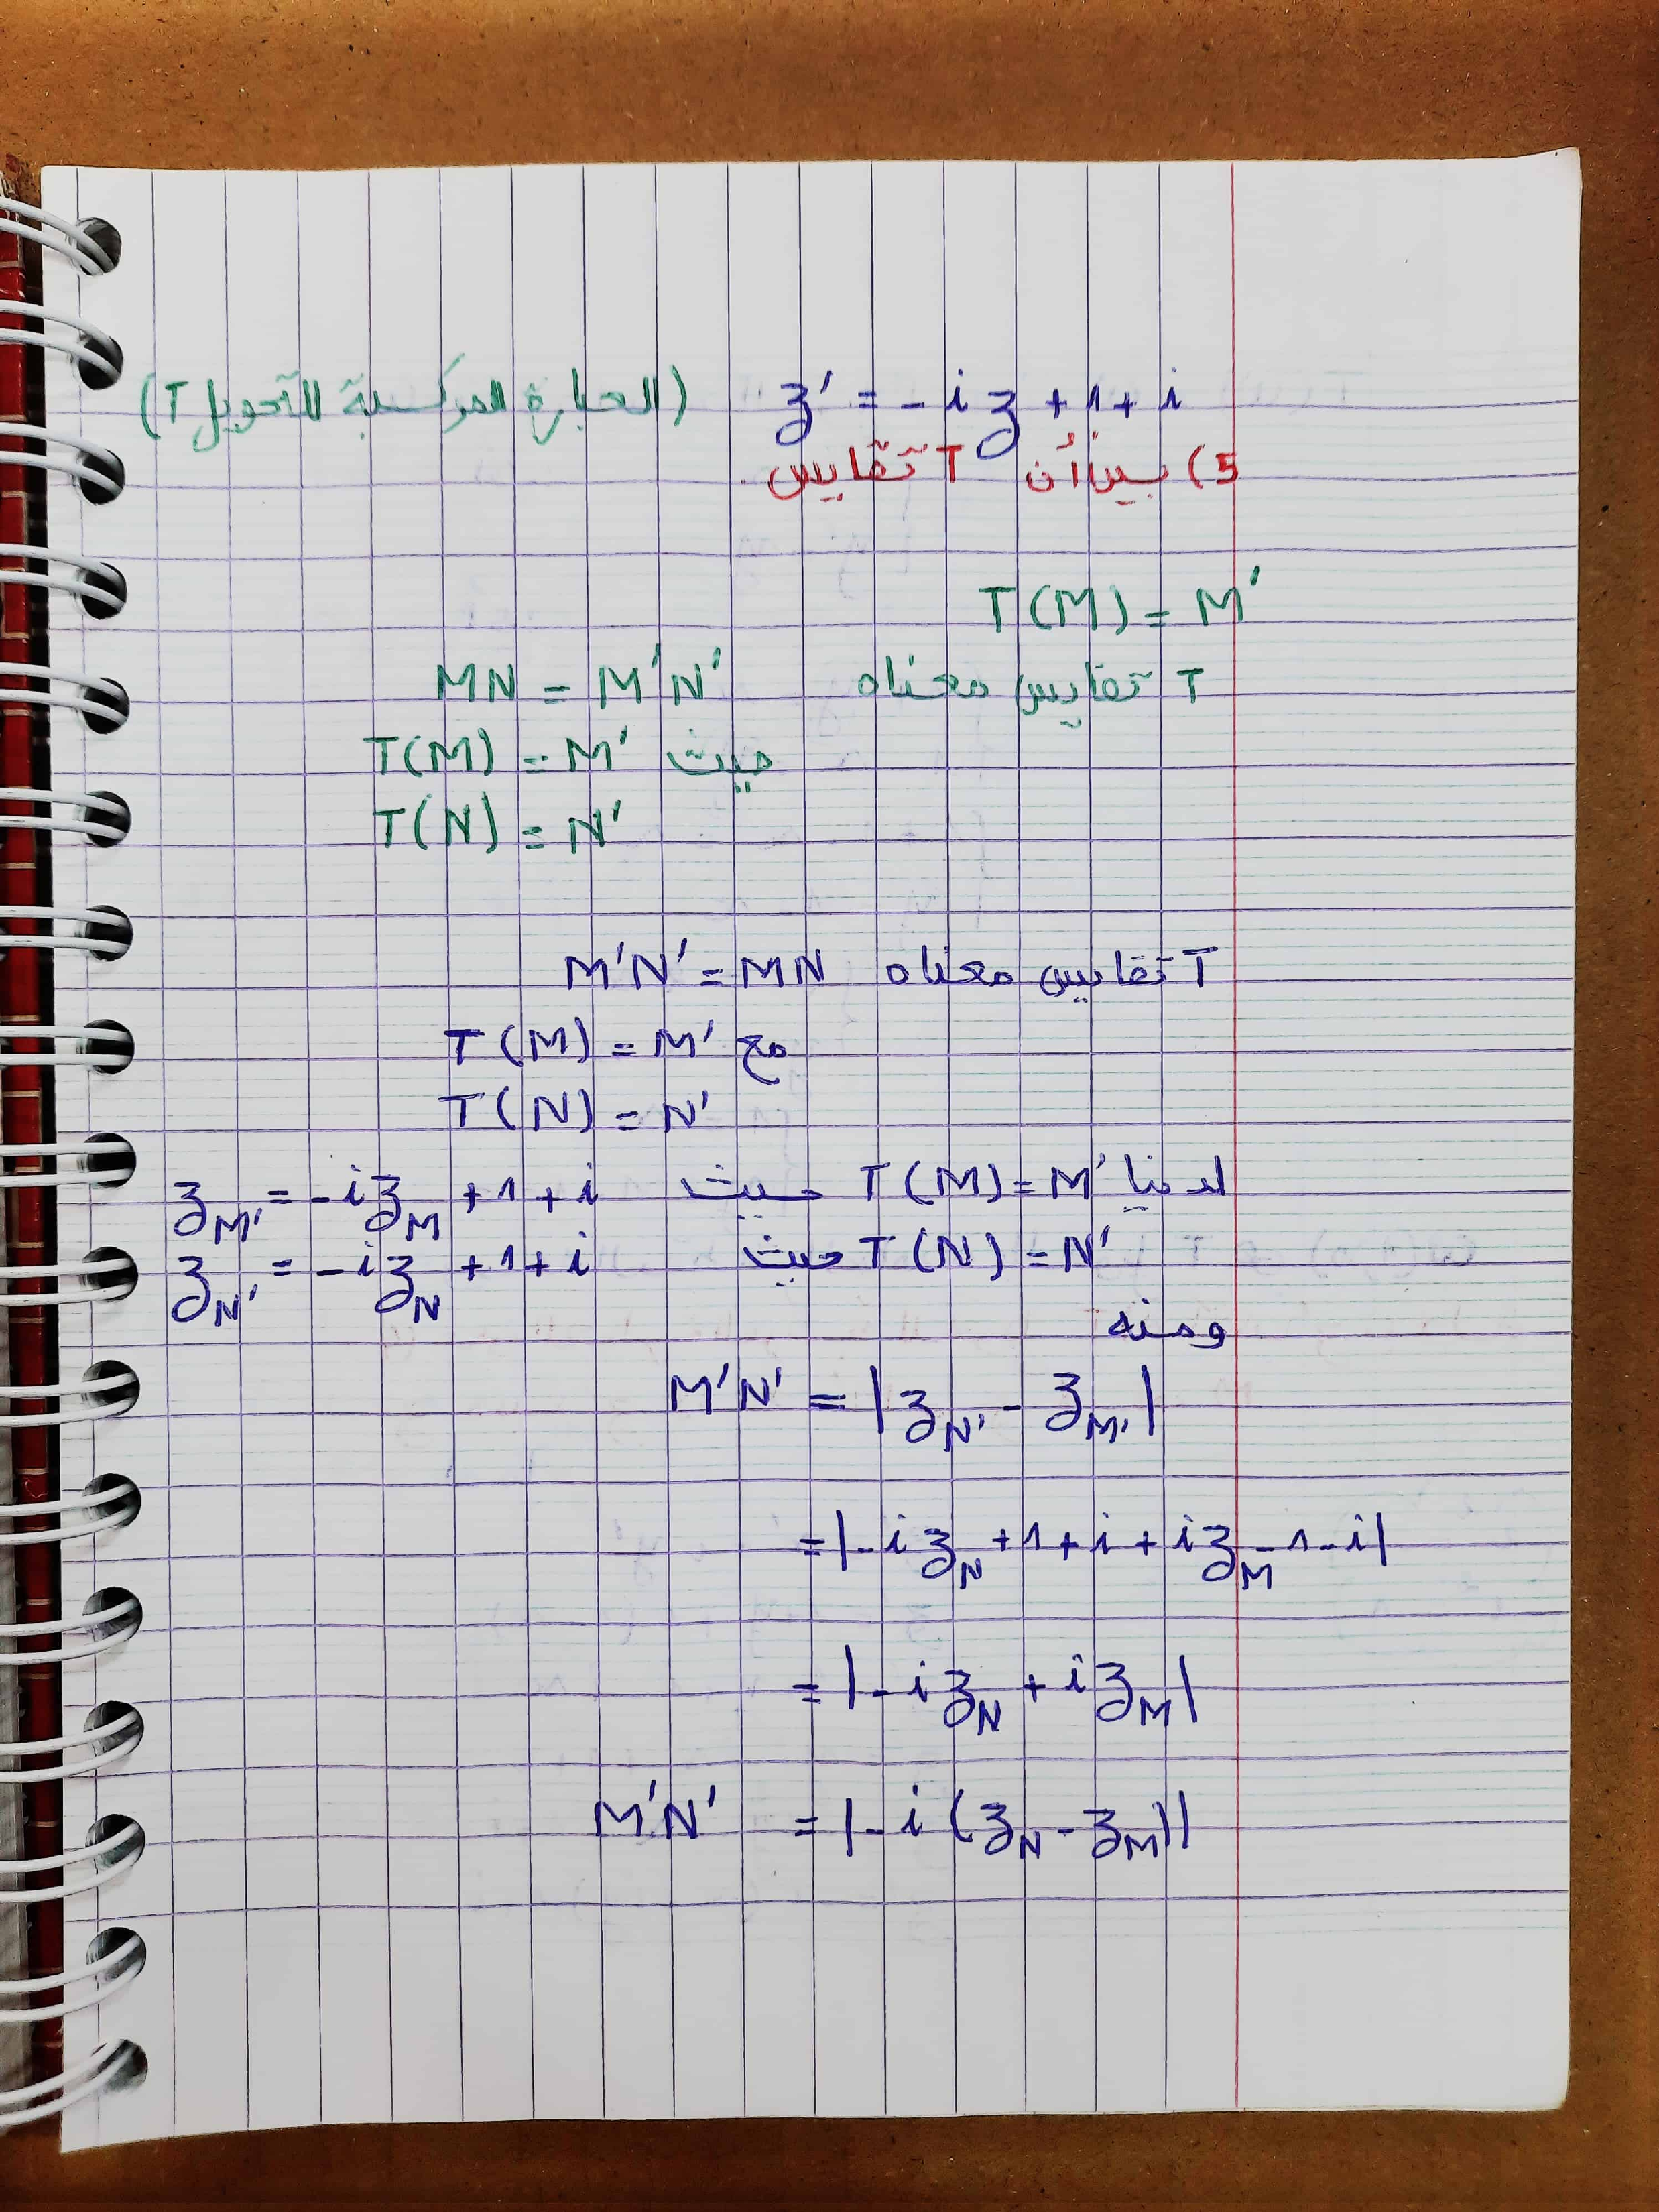 z' = -iz + 1 + i (العبارة المركبة للتحويل T)
5) بين أن T تقايس.
T(M) = M'
T تقايس معناه MN = M'N'
حيث T(M) = M'
T(N) = N'
T تقايس معناه M'N' = MN
مع T(M) = M'
T(N) = N'
لدينا T(M) = M' حيث z_M' = -iz_M + 1 + i
T(N) = N' حيث z_N' = -iz_N + 1 + i
ومنه
M'N' = |z_N' - z_M'|
= |-iz_N + 1 + i + iz_M - 1 - i|
= |-iz_N + iz_M|
M'N' = |-i(z_N - z_M)|